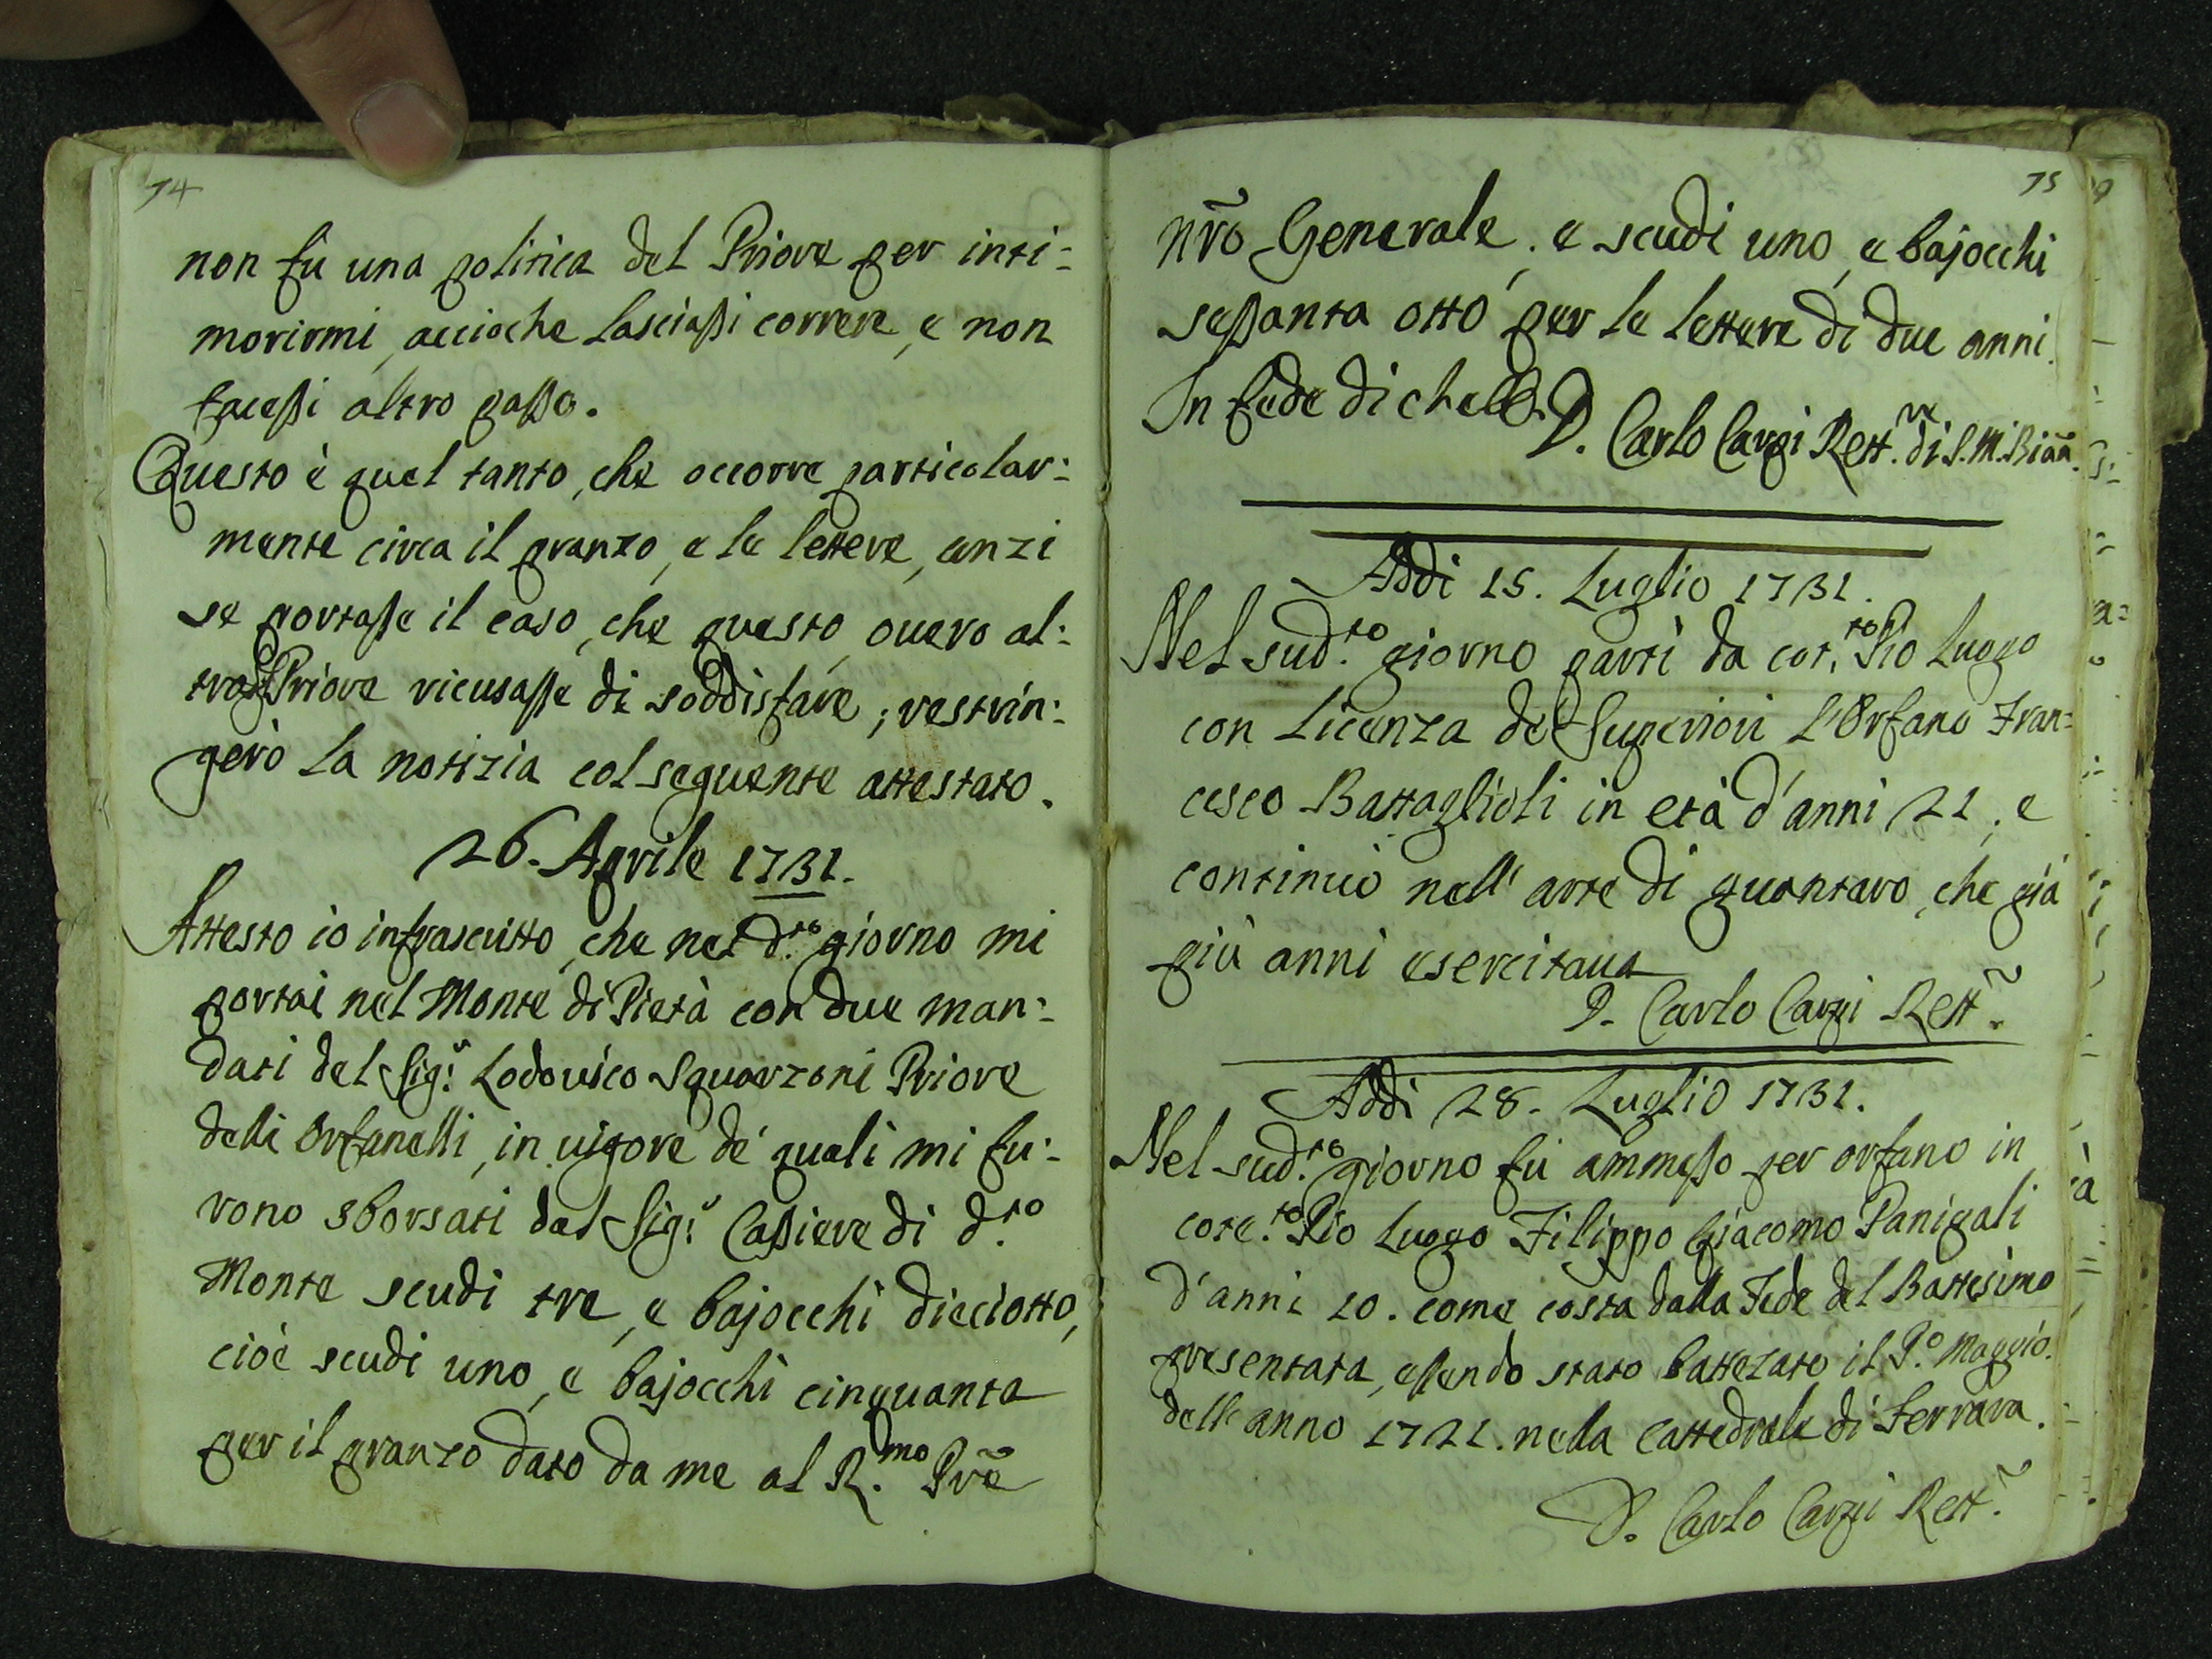 74
non fù una politica del Priore per inti:
morirmi, acciòche lasciaßi correre, e non
faceßi altro paßo.
Questo è quel tanto, che occorre particolar:
mente circa il pranzo, e le lettere, anzi
se portaße il caso, che questo, ouero al:
tro Priore ricusaße di soddisfare; restrin:
gerò la notizia col seguente attestato.
26. Aprile 1731.
Attesto io infrascritto, che nel d.to giorno mi
portai nel Monte di Pietà con due man:
dati del Sig.r Lodouico Squarzoni Priore
delli Orfanelli, in uigore de' quali mi fu:
rono sborsati dal Sig.r Caßiere di d.to
Monte scudi tre, e bajocchi dieciotto,
cioè scudi uno, e bajocchi cinquanta
per il pranzo dato da me al R.mo Prẽ
75
nr̃o Generale, e scudi uno, e bajocchi
seßanta otto per le lettere di due anni.
In fede di che
D. Carlo Carpi Rett.re di S. M. Biãn.
Addi 15. Luglio 1731.
Nel sud.to giorno partì da cot.to Pio Luogo
con Licenza de Superiori l'Orfano Fran:
cesco Battaglioli in età d'anni 21, e
continuò nell' arte di quantaro, che già
più anni esercitaua
D. Carlo Carpi Rett.~
Addi 28. Luglio 1731.
Nel sud.to giorno fù ammeßo per orfano in
cote.to Pio Luogo Filippo Giacomo Panigali
d'anni 10. come costa dalla Fede del Battesimo
presentata, eßendo stato battezato il P.o Maggio.
dell' anno 1721. nella Cattedrale di Ferrara.
D. Carlo Carpi Rett.~